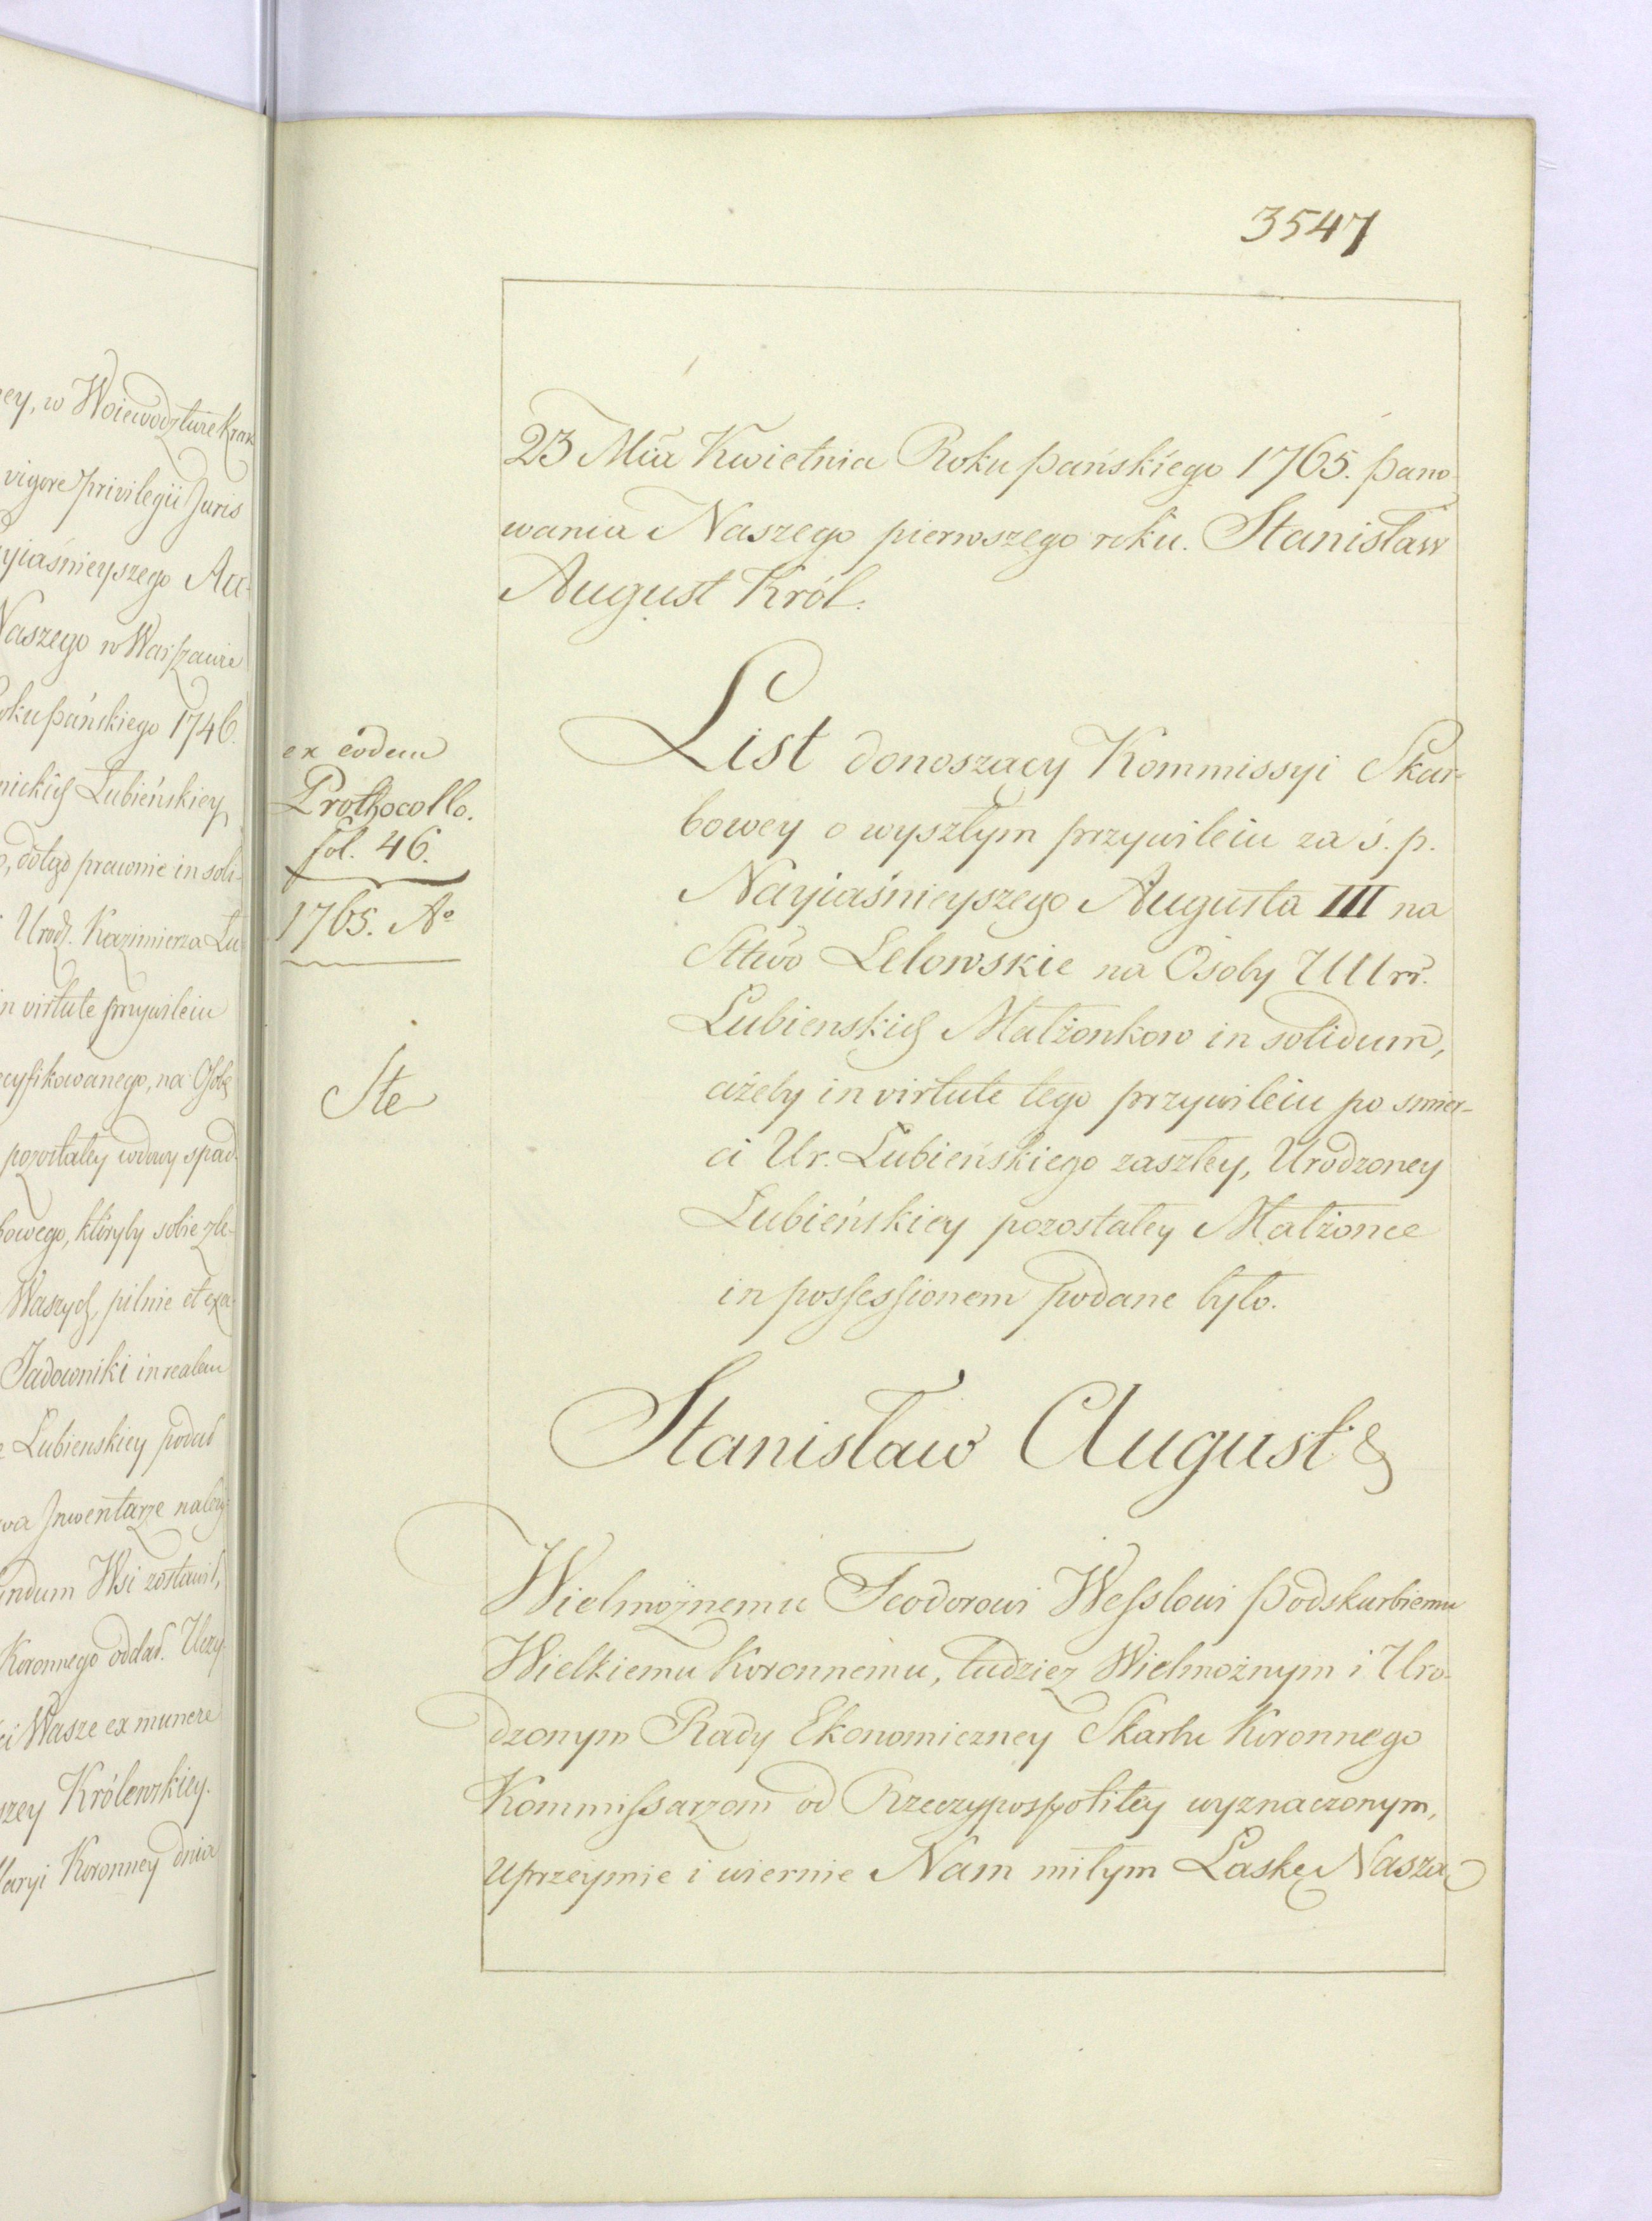 3547
23 Mca Kwietnia Roku pańskiego 1765. pano
wania Naszego pierwszego roku. Stanisław
August Król.
ex eodem
Prothocollo.
fol. 46.
1765. Aº
Ste
List donoszący Kommissyi Skar-
bowey o wyszłym przywileiu za ś. p.
Nayiaśnieyszego Augusta III na
Sttwo Lelowskie na Osoby UUrr.
Lubienskich Małżonkow in solidum,
ażeby in virtute tego przywileiu po smier-
ci Ur. Lubieńskiego zaszłey, Urodzoney
Lubieńskiey pozostałey Małżonce
in possessionem podane było.
Stanisław August &
Wielmożnemu Teodorowi Wesslowi Podskarbiemu
Wielkiemu Koronnemu, tudzież Wielmożnym i Uro-
dzonym Rady Ekonomiczney Skarbu Koronnego
Kommissarzom od Rzeczypospolitey wyznaczonym,
uprzeymie i wiernie Nam miłym Łaskę Naszą
ey, w Woiewodztwie Krak
vigore privilegii Juris
yiaśnieyszego Au-
Naszego w Warszawie
oku pańskiego 1746.
nickich Lubieńskiey
prawnie in soli-
Urodz. Kazimierza Lu
n virtute przywileiu
ecyfikowanego, na Osobę
pozostałey wdowy spad
bowego, któryby sobie zle-
Waszych, pilnie et exa
Jadowniki in realem
Lubienskiey podał
wa Inwentarze należy
undum Wsi zostawił,
Koronnego oddał. Uczy
ci Wasze ex munere
szey Królewskiey.
laryi Koronney dnia